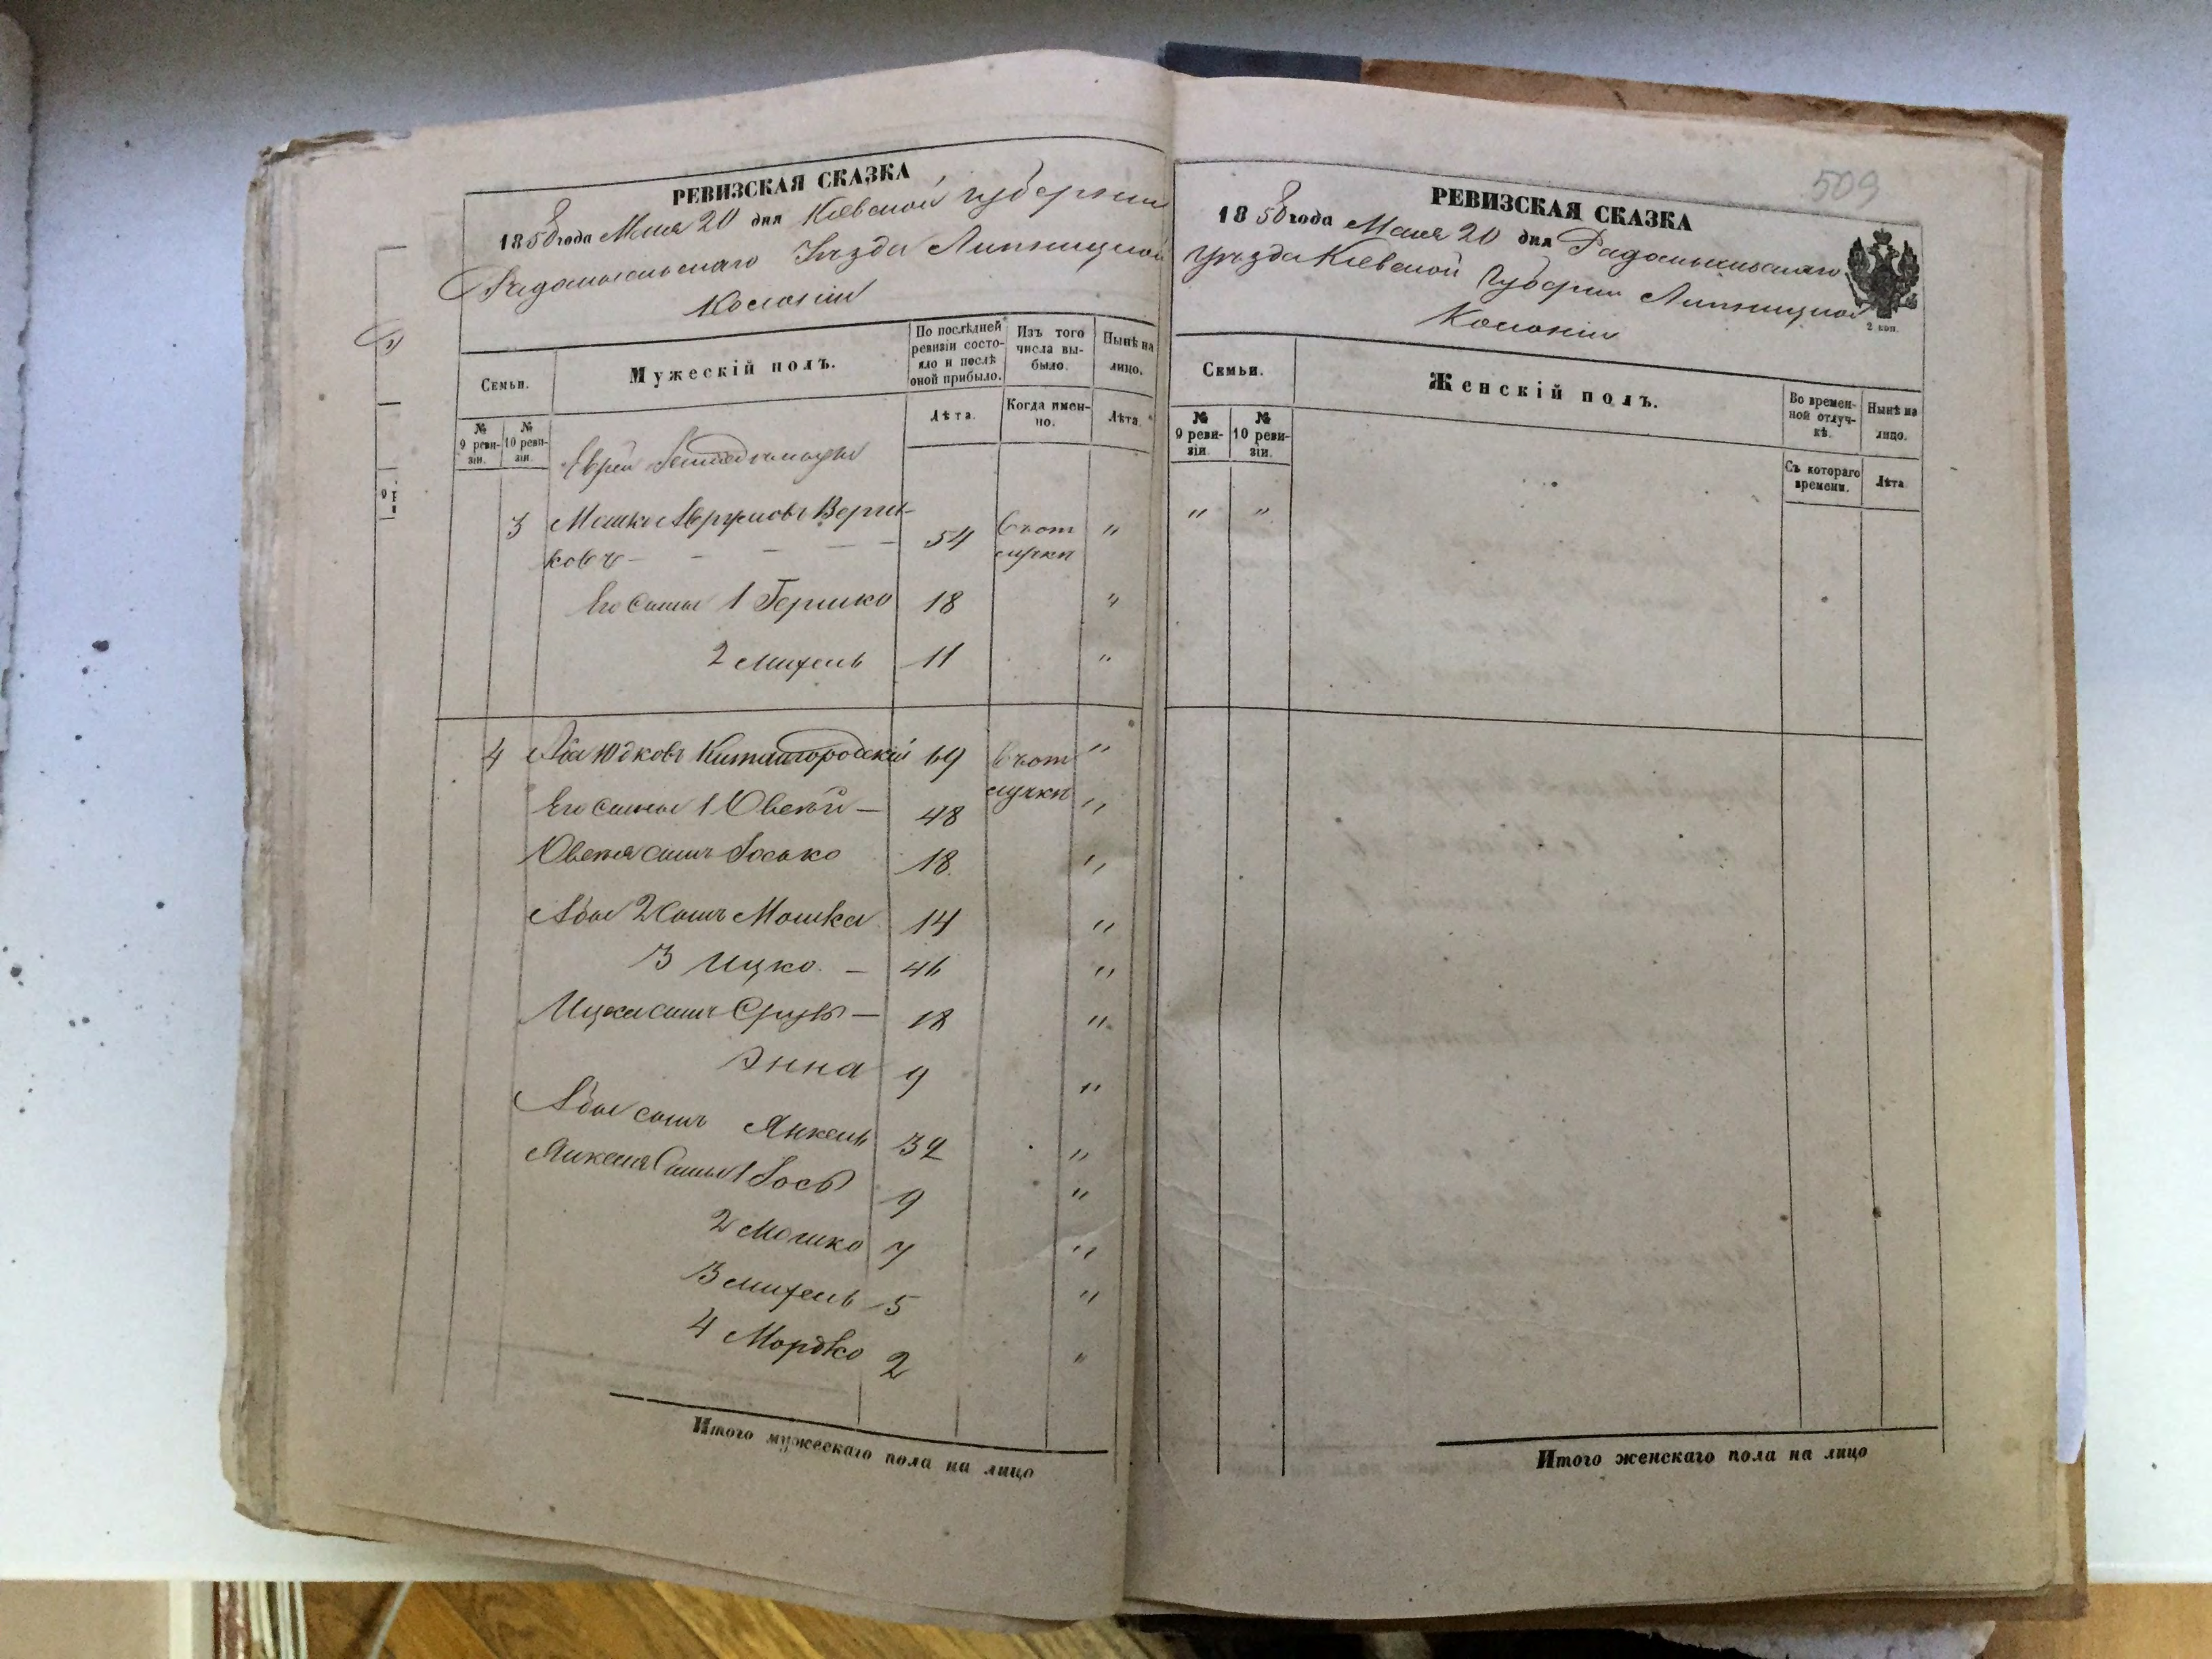 РЕВИЗСКАЯ СКАЗКА
1858 года Мая 20 дня Кіевской губерніи
Радомысльскаго Уѣзда Липницкой
Колоніи
Семьи.
Мужескій полъ.
По послѣдней ревизіи состояло и послѣ оной прибыло.
Изъ того числа выбыло.
Нынѣ на лицо.
№ 9 ревизіи.
№ 10 ревизіи.
Лѣта.
Когда именно.
Лѣта.
Евреи
3 Мошко Аврумовъ Верни-
ковъ - - - - - 54 въ от
лучкѣ "
Его сыны 1 Гершко 18 "
2 Михель 11 "
4 Аба Юдковъ Китайгородскій 69 въ от "
Его сыны 1 48 лучкѣ "
сынъ Іосько 18 "
Абы 2 сынъ Мошка 14 "
3 Ицко. — 46 "
Ицка сынъ Сруль — 18 "
Энна 9 "
Абы сынъ Янкель 32 "
Янкеля Сыны 1 Іось 9 "
2 Мошко 7 "
3 Михель 5 "
4 Мордко 2 "
Итого мужескаго пола на лицо
509
РЕВИЗСКАЯ СКАЗКА
1858 года Мая 20 дня Радомысльскаго
уѣзда Кіевской Губерніи Липницкой
Колоніи
2 коп.
Семьи.
Женскій полъ.
Во временной отлучкѣ.
Нынѣ на лицо.
№ 9 ревизіи.
№ 10 ревизіи.
Съ котораго времени.
Лѣта
" "
Итого женскаго пола на лицо